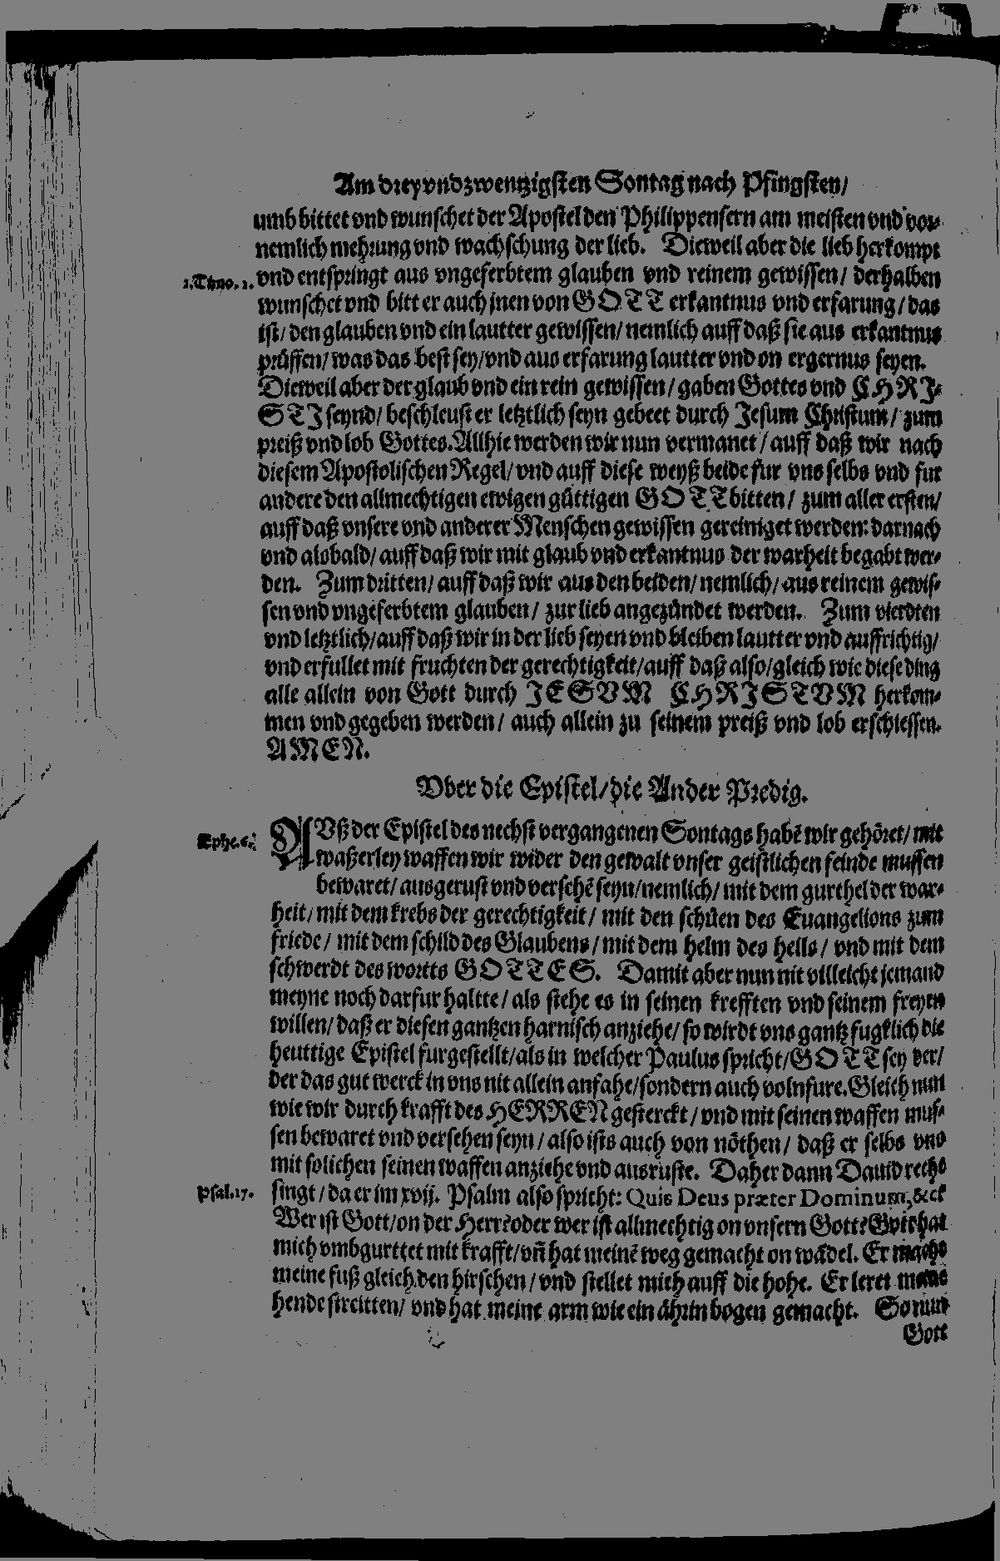 Am dreyvndzwentzigsten Sontag nach Pfingsten/
umb bittet vnd wunschet der Apostel den Philippensern am meisten vnd vor-
nemlich mehrung vnd wachschung der lieb. Dieweil aber die lieb herkompt
1.Timo.1. vnd entspringt aus vngeferbtem glauben vnd reinem gewissen/ derhalben
wunschet vnd bitt er auch jnen von GOTT erkantnus vnd erfarung/ das
ist/ den glauben vnd ein lautter gewissen/ nemlich auff daß sie aus erkantnus
prüffen/ was das best sey/ vnd aus erfarung lautter vnd on ergernus seyen.
Dieweil aber der glaub vnd ein rein gewissen/ gaben Gottes vnd CHRI-
STI seynd/ beschleust er letztlich seyn gebeet durch Jesum Christum/ zum
preiß vnd lob Gottes. Allhie werden wir nun vermanet/ auff daß wir nach
diesem Apostolischen Regel/ vnd auff diese weyß beide fur vns selbs vnd fur
andere den allmechtigen ewigen güttigen GOTT bitten/ zum aller ersten/
auff daß vnsere vnd anderer Menschen gewissen gereiniget werden: darnach
vnd alsbald/ auff daß wir mit glaub vnd erkantnus der warheit begabt wer-
den. Zum dritten/ auff daß wir aus den beiden/ nemlich/ aus reinem gewis-
sen vnd vngeferbtem glauben/ zur lieb angezündet werden. Zum vierdten
vnd letztlich/ auff daß wir in der lieb seyen vnd bleiben lautter vnd auffrichtig/
vnd erfullet mit fruchten der gerechtigkeit/ auff daß also/ gleich wie diese ding
alle allein von Gott durch JESVM CHRISTVM herkom-
men vnd gegeben werden/ auch allein zu seinem preiß vnd lob erschiessen.
AMEN.
Vber die Epistel/ die Ander Predig.
Ephe.6. AVß der Epistel des nechst vergangenen Sontags habē wir gehöret/ mit
waßerley waffen wir wider den gewalt vnser geistlichen feinde mussen
bewaret/ ausgerust vnd versehē seyn/ nemlich/ mit dem gurthel der war-
heit/ mit dem krebs der gerechtigkeit/ mit den schůen des Euangelions zum
friede/ mit dem schild des Glaubens/ mit dem helm des heils/ vnd mit dem
schwerdt des wortts GOTTES. Damit aber nun nit villeicht jemand
meyne noch darfur haltte/ als stehe es in seinen krefften vnd seinem freyen
willen/ daß er diesen gantzen harnisch anziehe/ so wirdt vns gantz fugklich die
heuttige Epistel furgestellt/ als in welcher Paulus spricht/ GOTT sey der/
der das gut werck in vns nit allein anfahe/ sondern auch volnfure. Gleich nun
wie wir durch krafft des HERREN gesterckt/ vnd mit seinen waffen mus-
sen bewaret vnd versehen seyn/ also ists auch von nöthen/ daß er selbs vns
mit solichen seinen waffen anziehe vnd ausruste. Daher dann Dauid recht
Psal.17. singt/ da er im xvij. Psalm also spricht: Quis Deus præter Dominum, &c
Wer ist Gott/ on der Herr? oder wer ist allmechtig on vnsern Gott? Gott hat
mich vmbgurttet mit krafft/ vn̄ hat meinē weg gemacht on wādel. Er macht
meine fuß gleich den hirschen/ vnd stellet mich auff die hohe. Er leret meine
hende streitten/ vnd hat meine arm wie ein ährin bogen gemacht. So nun
Gott